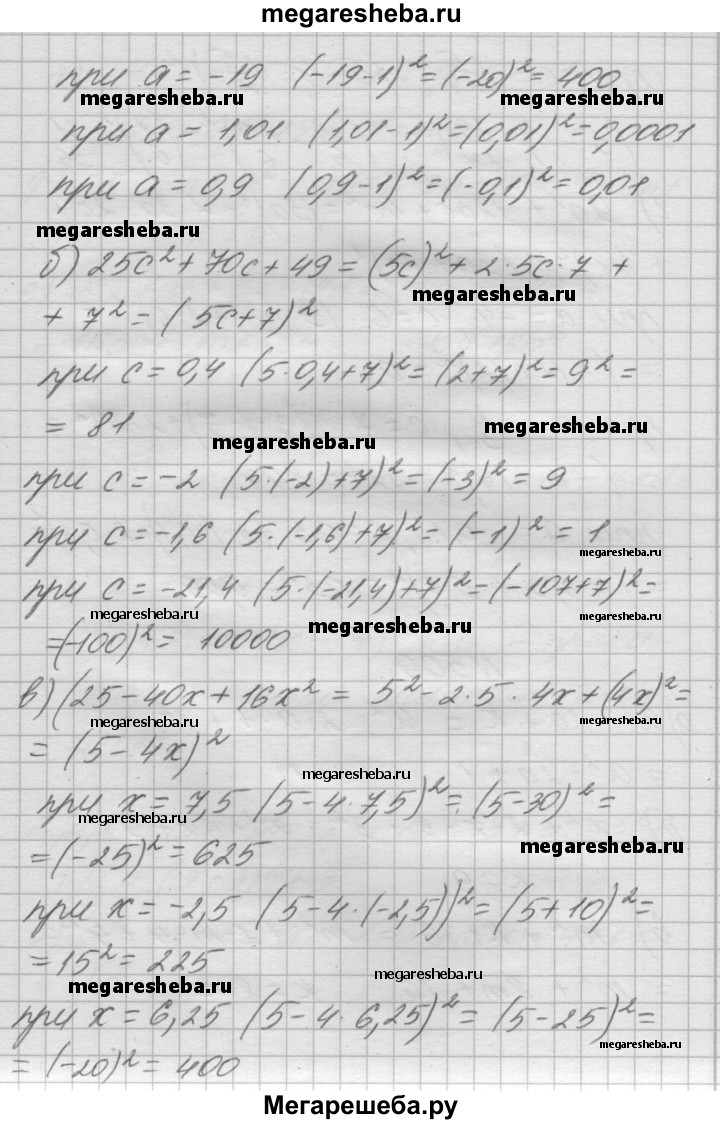 megaresheba.ru
при a = -19 (-19-1)² = (-20)² = 400
megaresheba.ru megaresheba.ru
при a = 1,01 (1,01-1)² = (0,01)² = 0,0001
при a = 0,9 (0,9-1)² = (-0,1)² = 0,01
megaresheba.ru
б) 25c² + 70c + 49 = (5c)² + 2·5c·7 +
megaresheba.ru
+ 7² = (5c+7)²
при c = 0,4 (5·0,4+7)² = (2+7)² = 9² =
= 81
megaresheba.ru megaresheba.ru
при c = -2 (5·(-2)+7)² = (-3)² = 9
при c = -1,6 (5·(-1,6)+7)² = (-1)² = 1
megaresheba.ru
при c = -21,4 (5·(-21,4)+7)² = (-107+7)² =
megaresheba.ru megaresheba.ru megaresheba.ru
= (-100)² = 10000
в) (25 - 40x + 16x² = 5² - 2·5·4x + (4x)² =
megaresheba.ru megaresheba.ru
= (5 - 4x)²
megaresheba.ru
при x = 7,5 (5-4·7,5)² = (5-30)² =
megaresheba.ru
= (-25)² = 625
megaresheba.ru
при x = -2,5 (5-4·(-2,5))² = (5+10)² =
= 15² = 225
megaresheba.ru megaresheba.ru
при x = 6,25 (5-4·6,25)² = (5-25)² =
megaresheba.ru
= (-20)² = 400
Мегарешеба.ру